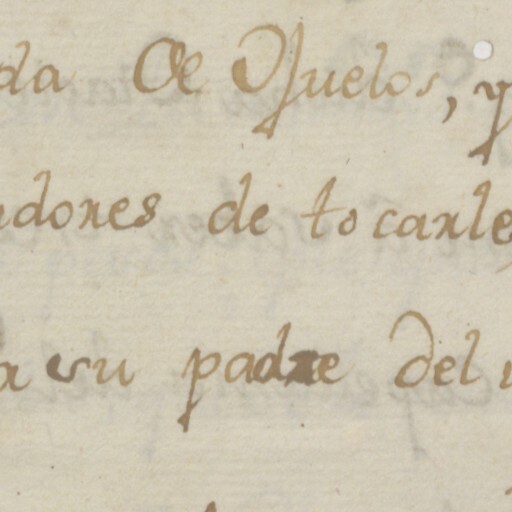 da De Ojuelos, y
dores de tocarle
a su padre del